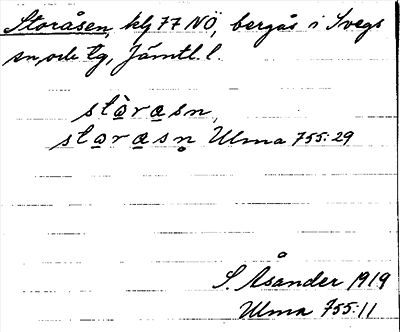 Storåsen klj 77 NÖ, bergås i Svegs
sn, och tg, Jämtl. l.
stàrasn,
starasn Ulma 755:29
S. Åsander 1919
Ulma 755:11